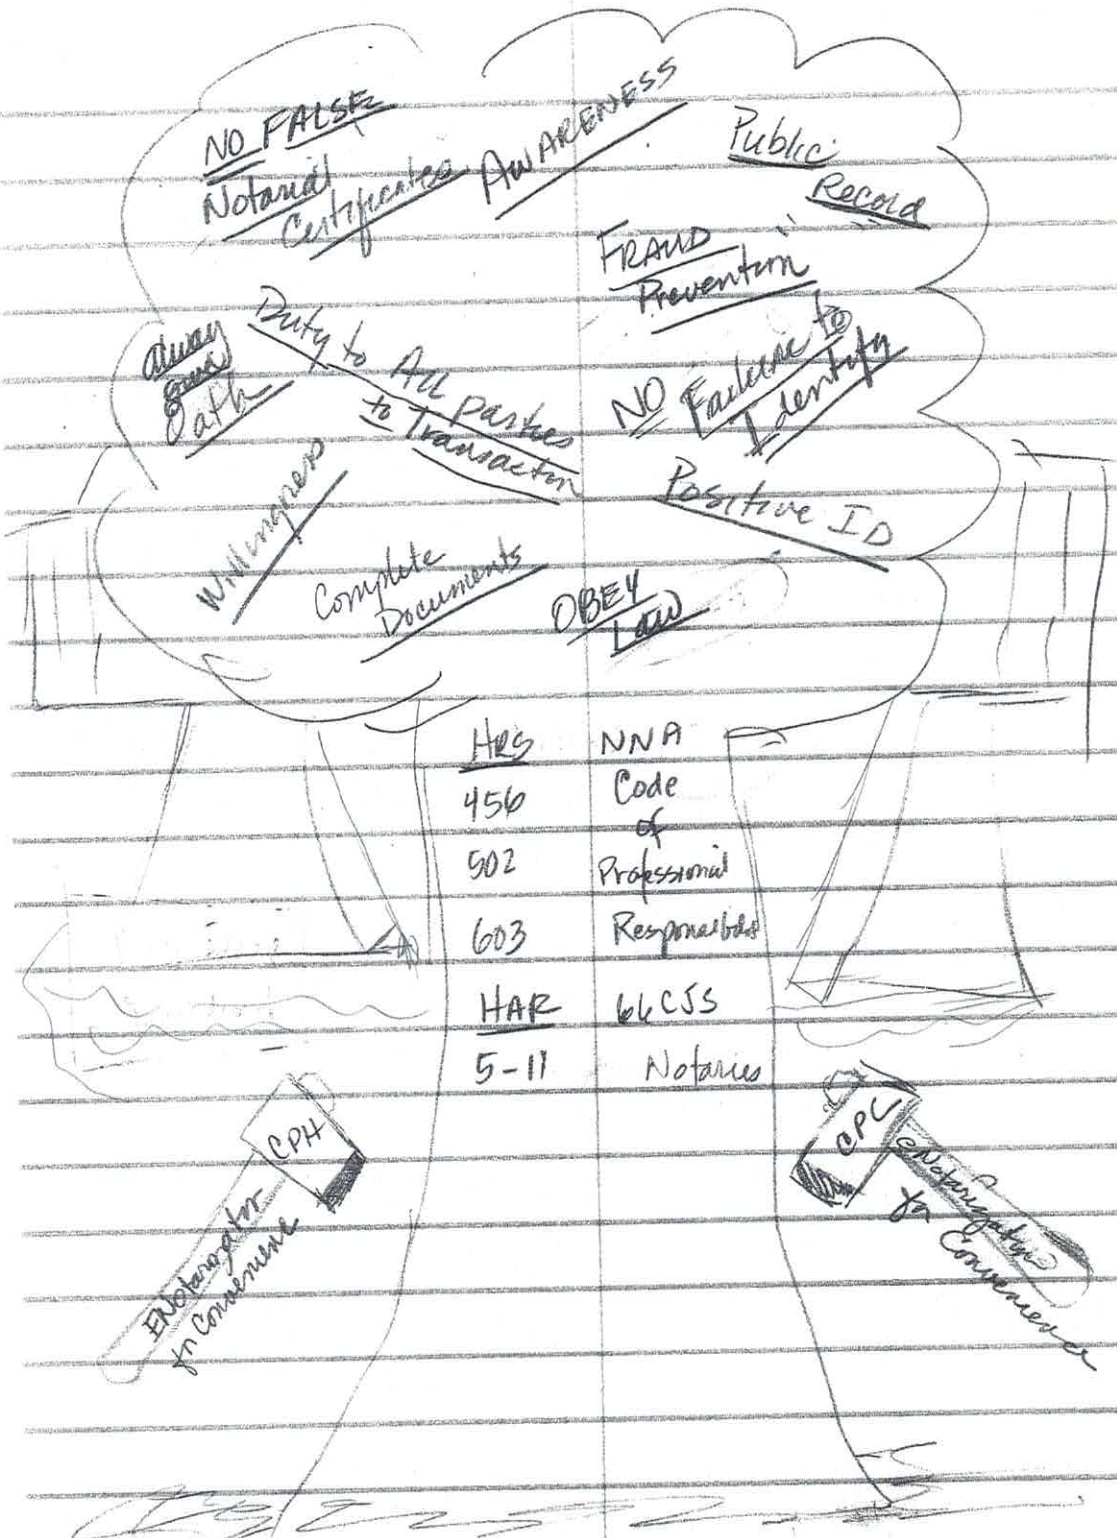 NO FALSE
Notarial
Certificates
AWARENESS
Public
Record
FRAUD
Prevention
Duty to All parties
to Transaction
alway
Oath
NO Failure to
Identify
Willingness
Positive ID
Complete
Documents
OBEY
Law
HRS
456
502
603
HAR
5-11
NNA
Code
of
Professional
66 CJS
Notaries
CPH
ENotarization
for Convenience
CPC
eNotarization
for
Convenience